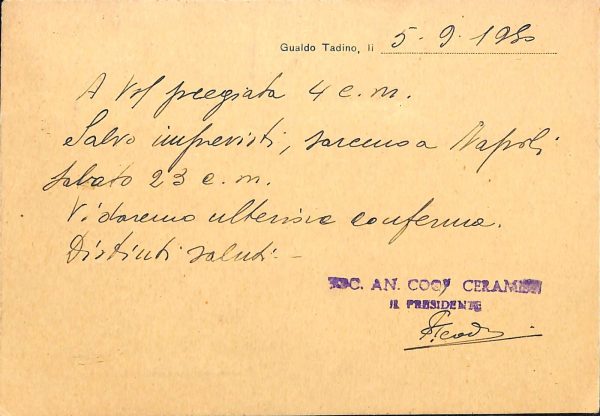 Gualdo Tadino, lì 5.9.1950
A Vs/ pregiata 4 c.m.
Salvo imprevisti, saremo a Napoli
sabato 23 c.m.
Vi daremo ulteriore conferma.
Distinti saluti.-
SOC. AN. COOP CERAMISTI
IL PRESIDENTE